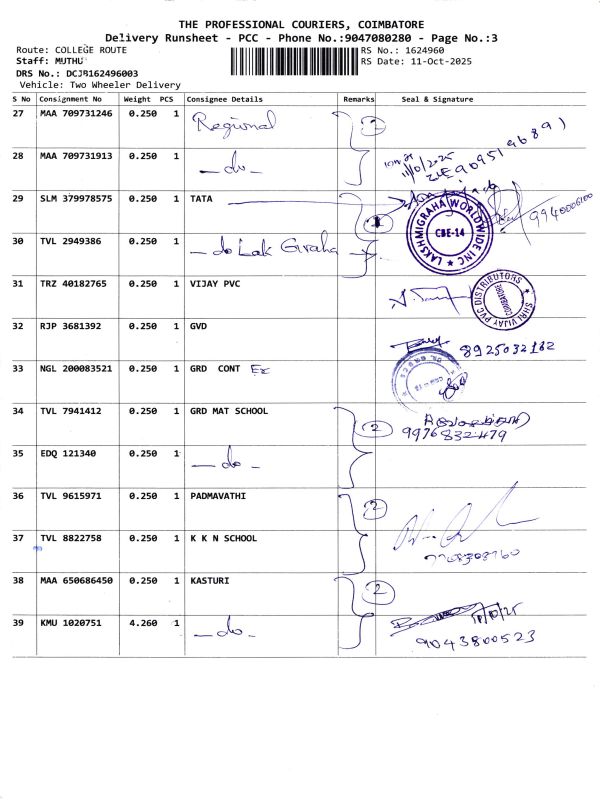 THE PROFESSIONAL COURIERS, COIMBATORE
Delivery Runsheet - PCC - Phone No.:9047080280 - Page No.:3
Route: COLLEGE ROUTE RS No.: 1624960
Staff: MUTHU RS Date: 11-Oct-2025
DRS No.: DCJB162496003
Vehicle: Two Wheeler Delivery
S No Consignment No Weight PCS Consignee Details Remarks Seal & Signature
27 MAA 709731246 0.250 1 Regional 2
28 MAA 709731913 0.250 1 - do - 11/10/2025
29 SLM 379978575 0.250 1 TATA 9940006100
LAKSHMIGRAHA WORLDWIDE INC CBE-14
30 TVL 2949386 0.250 1 - do Lak Graha
31 TRZ 40182765 0.250 1 VIJAY PVC
SHRI VIJAY PVC DISTRIBUTORS COIMBATORE
32 RJP 3681392 0.250 1 GVD 8925032162
33 NGL 200083521 0.250 1 GRD CONT Ex
34 TVL 7941412 0.250 1 GRD MAT SCHOOL 2
9976832479
35 EDQ 121340 0.250 1 - do -
36 TVL 9615971 0.250 1 PADMAVATHI 2
37 TVL 8822758 0.250 1 K K N SCHOOL
38 MAA 650686450 0.250 1 KASTURI 2
39 KMU 1020751 4.260 1 - do - 11/10/25
9043800523